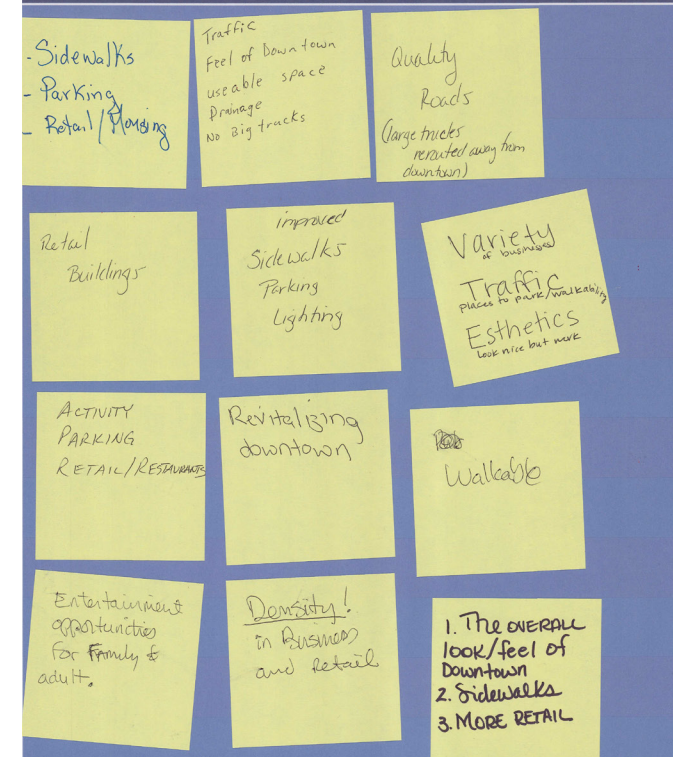 - Sidewalks
- Parking
- Retail/Housing
Traffic
Feel of Downtown
useable space
Drainage
No Big trucks
Quality
Roads
(large trucks
rerouted away from
downtown)
Retail
Buildings
improved
Sidewalks
Parking
Lighting
Variety
of businesses
Traffic
places to park/walkability
Esthetics
look nice but work
ACTIVITY
PARKING
RETAIL/RESTAURANTS
Revitalizing
downtown
Walkable
Entertainment
opportuncties
for Family &
adult.
Density!
in Business
and Retail
1. The OVERALL
look/feel of
Downtown
2. Sidewalks
3. MORE RETAIL